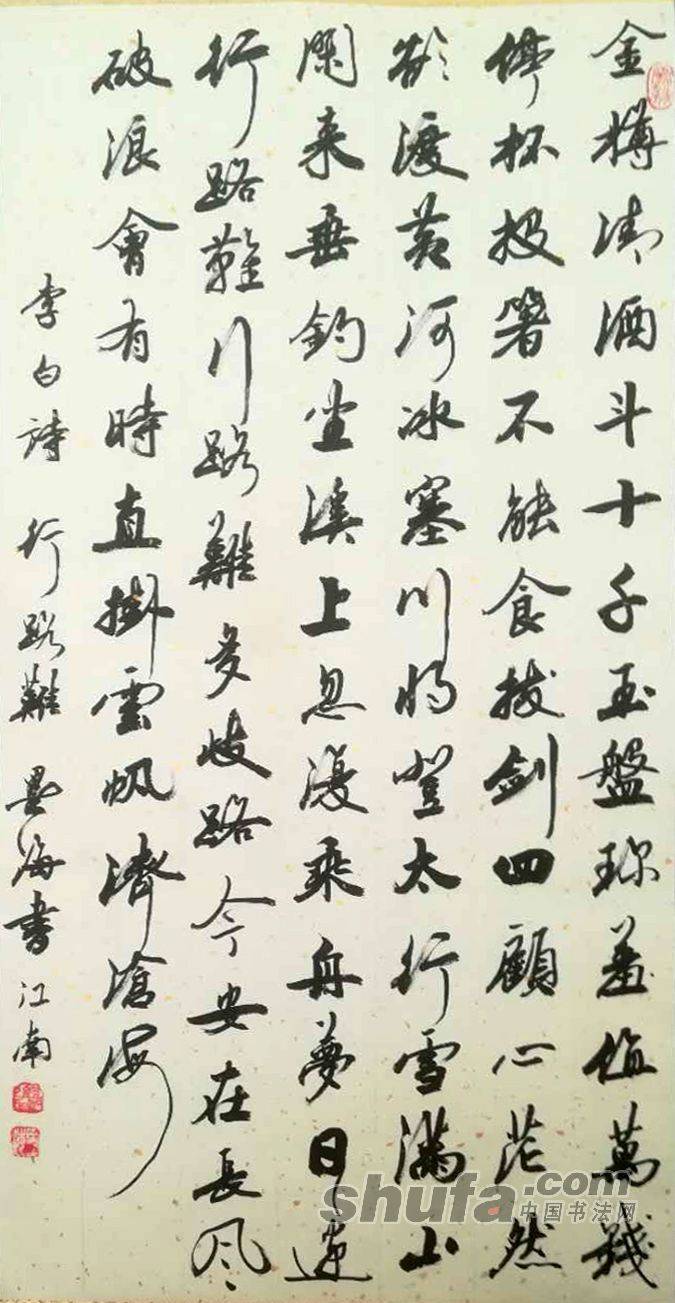 金樽清酒斗十千玉盤珍羞值萬錢
停杯投箸不能食拔劍四顧心茫然
欲渡黃河冰塞川將登太行雪滿山
閑来垂釣坐溪上忽復乘舟夢日邊
行路難行路難多歧路今安在長风
破浪會有時直掛雲帆濟滄海
李白詩 行路難 墨海書江南
shufa.com
中国书法网